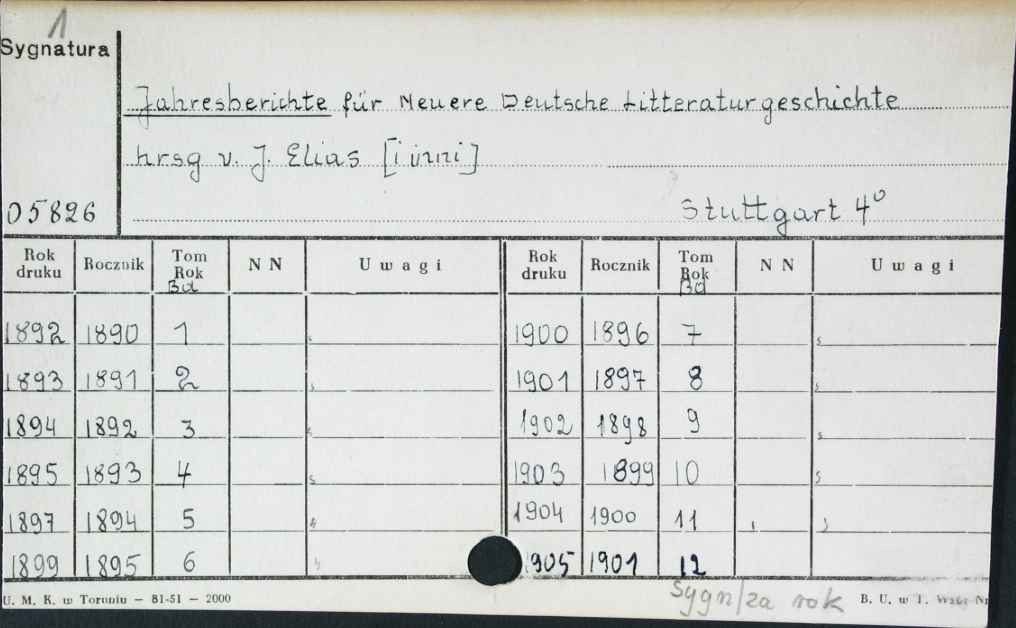 1
Sygnatura
Jahresberichte für Neuere Deutsche Litteraturgeschichte
hrsg v. J. Elias [i inni]
05826 Stuttgart 4º
Rok druku Rocznik Tom Rok Bd N N Uwagi Rok druku Rocznik Tom Rok Bd N N Uwagi
1892 1890 1 1900 1896 7
1893 1891 2 1901 1897 8
1894 1892 3 1902 1898 9
1895 1893 4 1903 1899 10
1897 1894 5 1904 1900 11
1899 1895 6 1905 1901 12
Sygn/za rok
U. M. K. w Toruniu — 81-51 — 2000 B. U. w T.